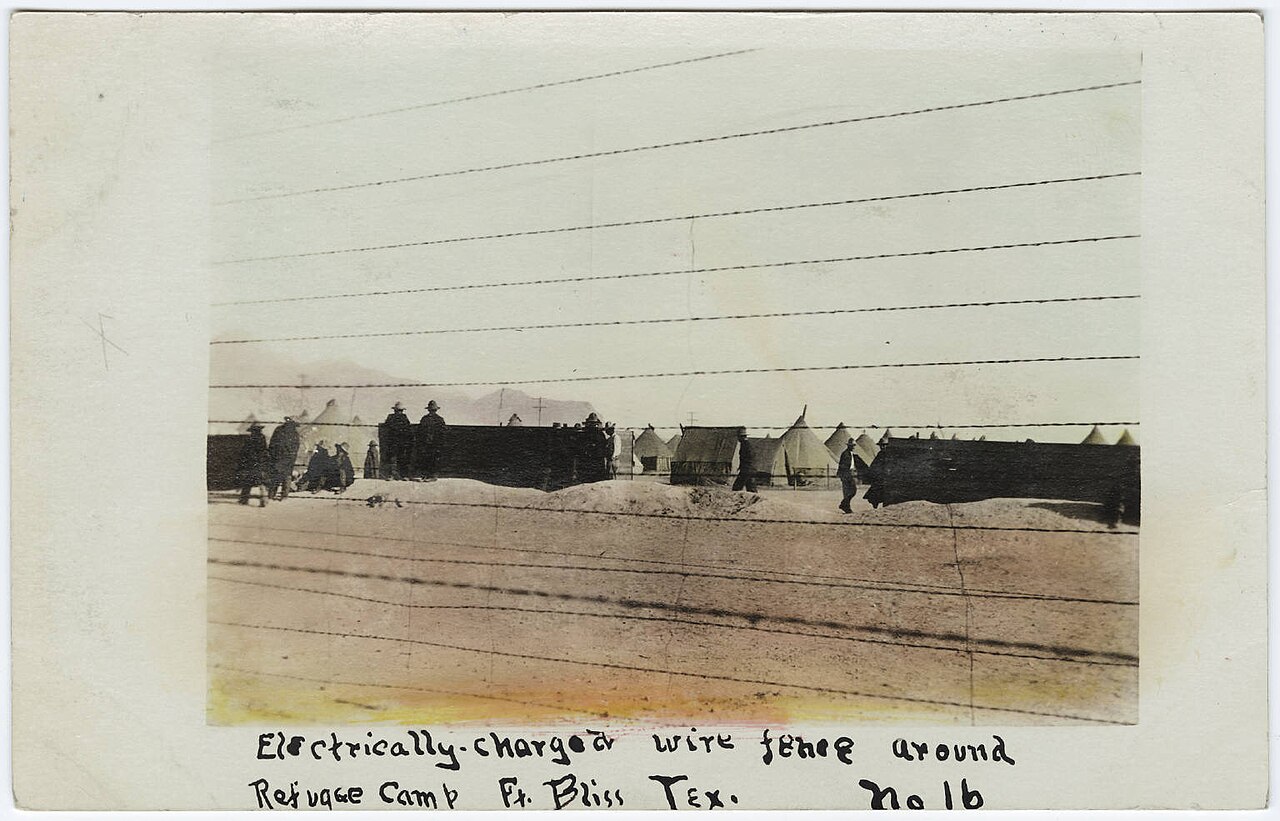 Electrically-charged wire fence around
Refugee Camp Ft. Bliss Tex. No 16